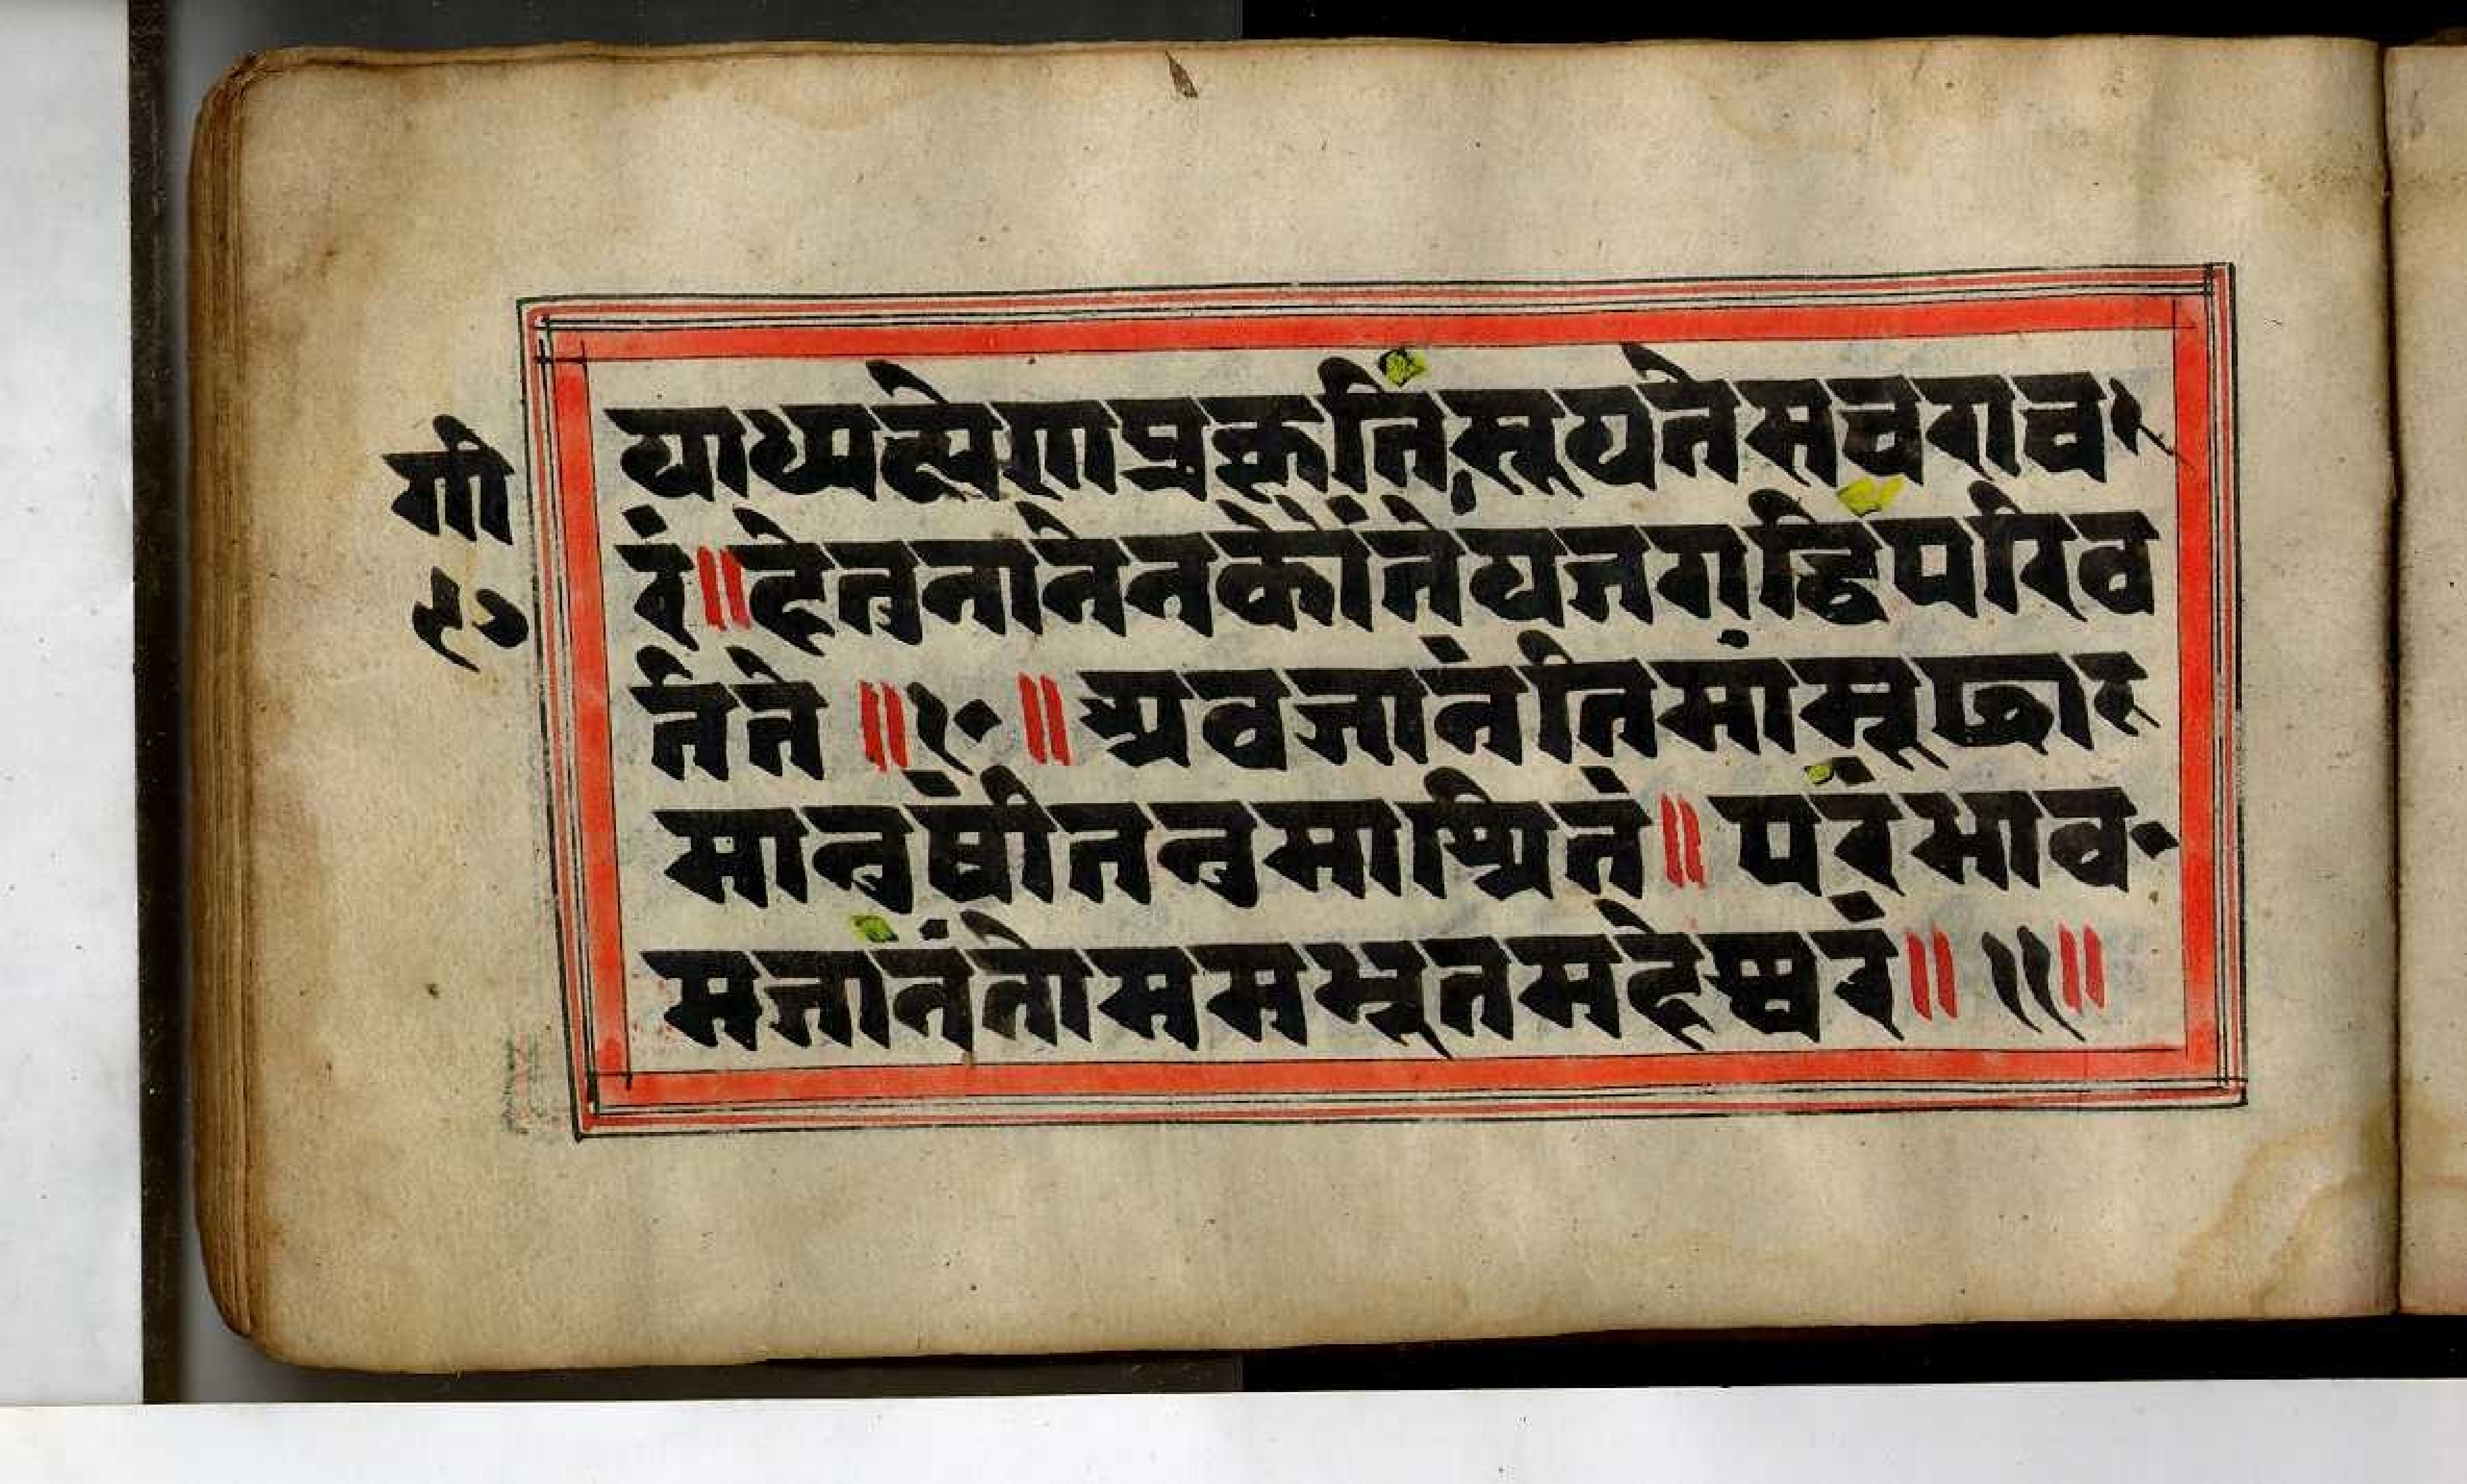 गी
९०
याध्यत्येणाप्रकृतिंसूयतेसचराच
रं॥हेतुनातेनकौंतेयजगद्विपरिव
र्तते॥१०॥अवजानंतिमांमूढा
मानुषींतनुमाश्रितं॥परंभाव
मजानंतोममभूतमहेश्वरं॥११॥